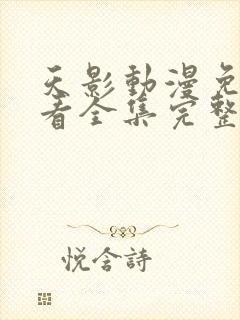 天影動漫免
看全集完整
悦含詩